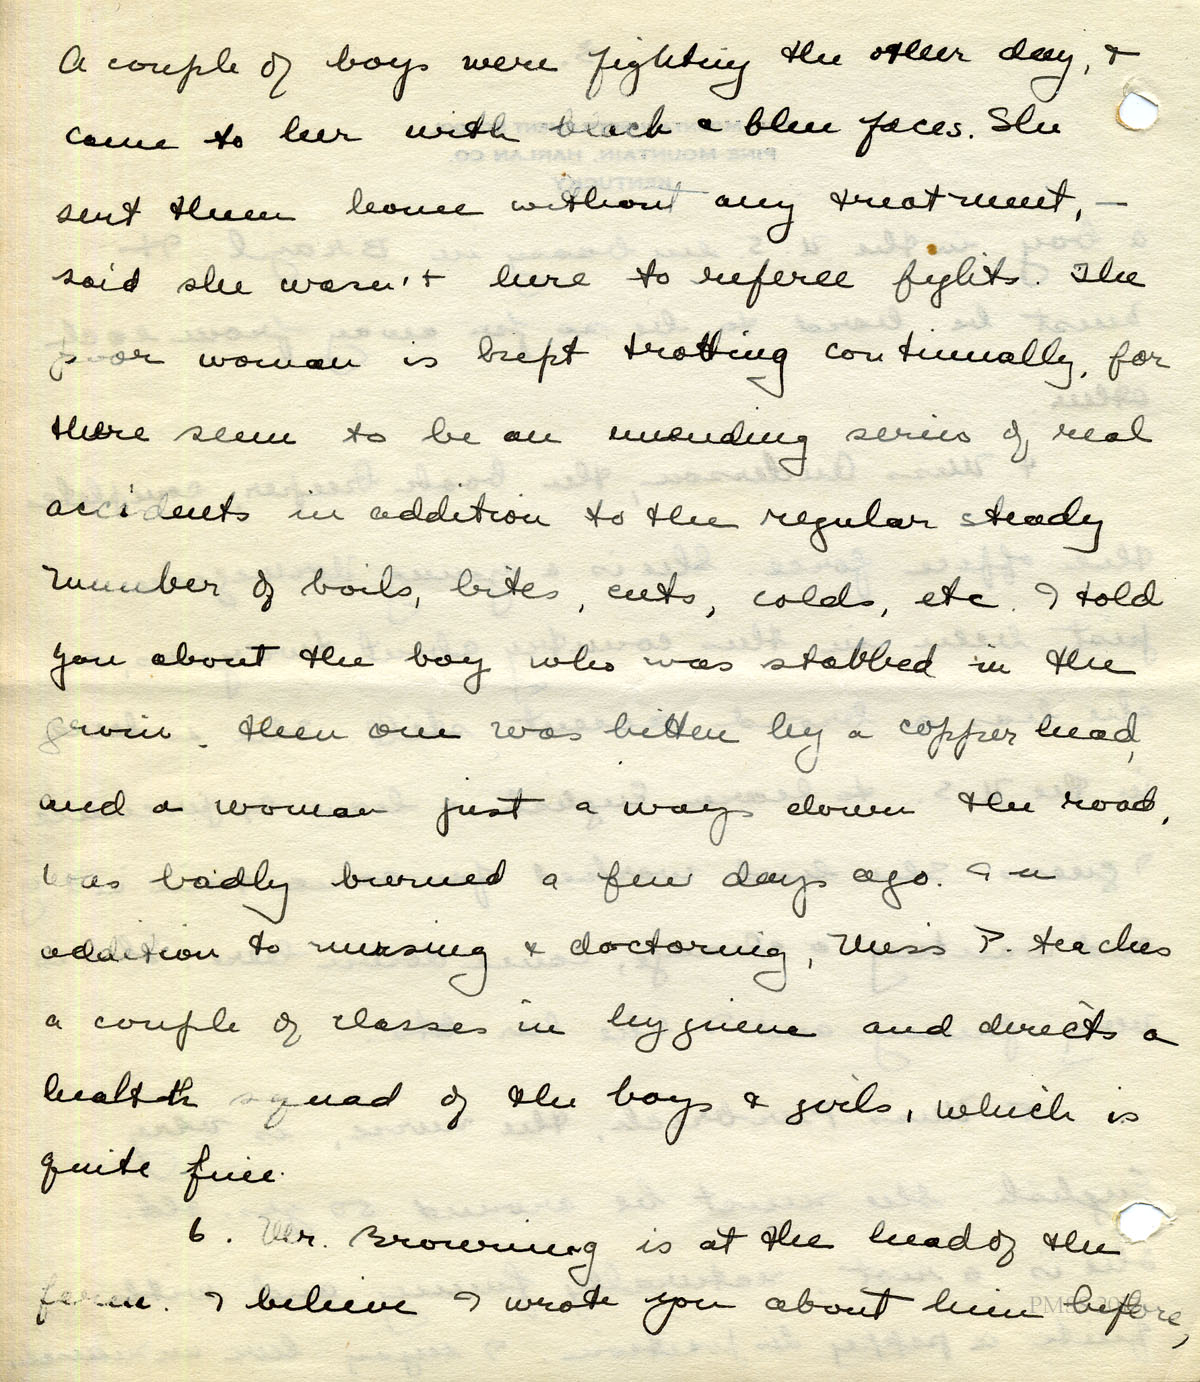 A couple of boys were fighting the other day, &
came to her with black & blue faces. She
sent them home without any treatment, —
said she wasn't here to referee fights. The
poor woman is kept trotting continually, for
there seem to be an unending series of real
accidents in addition to the regular steady
number of boils, bites, cuts, colds, etc. I told
you about the boy who was stabbed in the
groin. Then one was bitten by a copper head,
and a woman just a ways down the road,
was badly burned a few days ago. In
addition to nursing & doctoring, Miss P. teaches
a couple of classes in hygiene and directs a
health squad of the boys & girls, which is
quite fine.
6. Mr. Browning is at the head of the
farm. I believe I wrote you about him before,